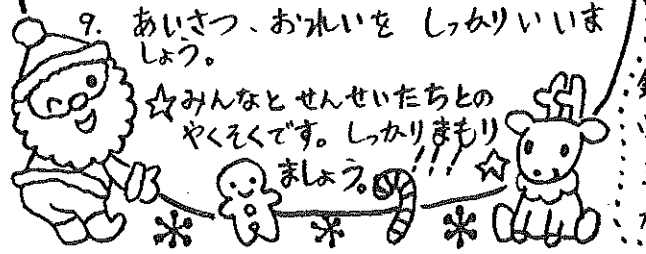 9. あいさつ、おれいを しっかりいいま
しょう。
☆みんなとせんせいたちとの
やくそくです。しっかりまもり
ましょう。!!! ☆